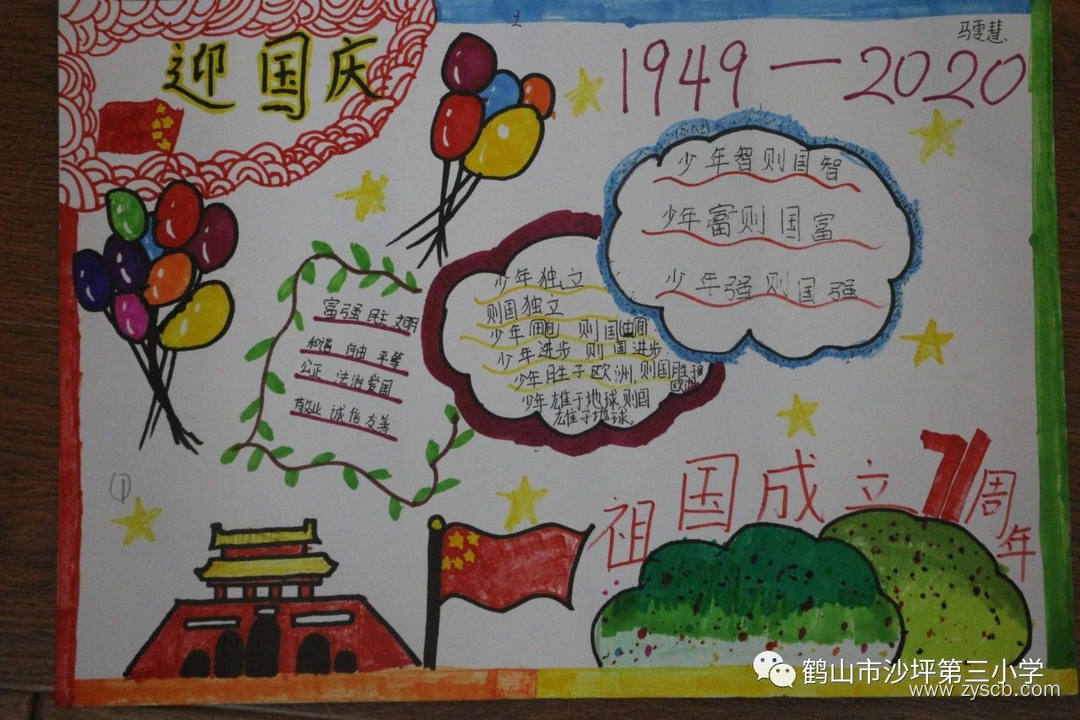 迎国庆
马雯慧
1949—2020
少年智则国智
少年富则国富
少年强则国强
少年独立
则国独立
少年自由 则国自由
少年进步 则国进步
少年胜于欧洲,则国胜于
欧洲
少年雄于地球,则国
雄于地球。
富强 民主 文明
和谐 自由 平等
公正 法治 爱国
敬业 诚信 友善
①
祖国成立71周年
鹤山市沙坪第三小学
www.zyscb.com